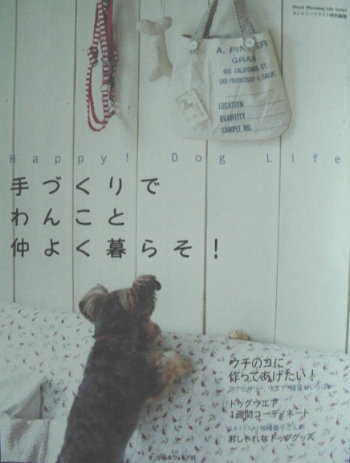 Heart Warming Life Series
A. PINGER
GRAI
405 CALIFORNIA ST.
SAN FRANCISCO, CALIF.
LOCATION
QUANTITY
SAMPLE NO.
Happy! Dog Life
手づくりで
わんこと
仲よく暮らそ！
ウチのコに
作ってあげたい！
ドッグウエア
1週間コーディネート
おしゃれなドッググッズ